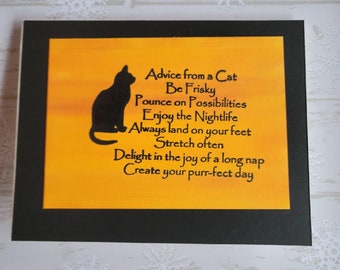 Advice from a Cat
Be Frisky
Pounce on Possibilities
Enjoy the Nightlife
Always land on your feet
Stretch often
Delight in the joy of a long nap
Create your purr-fect day